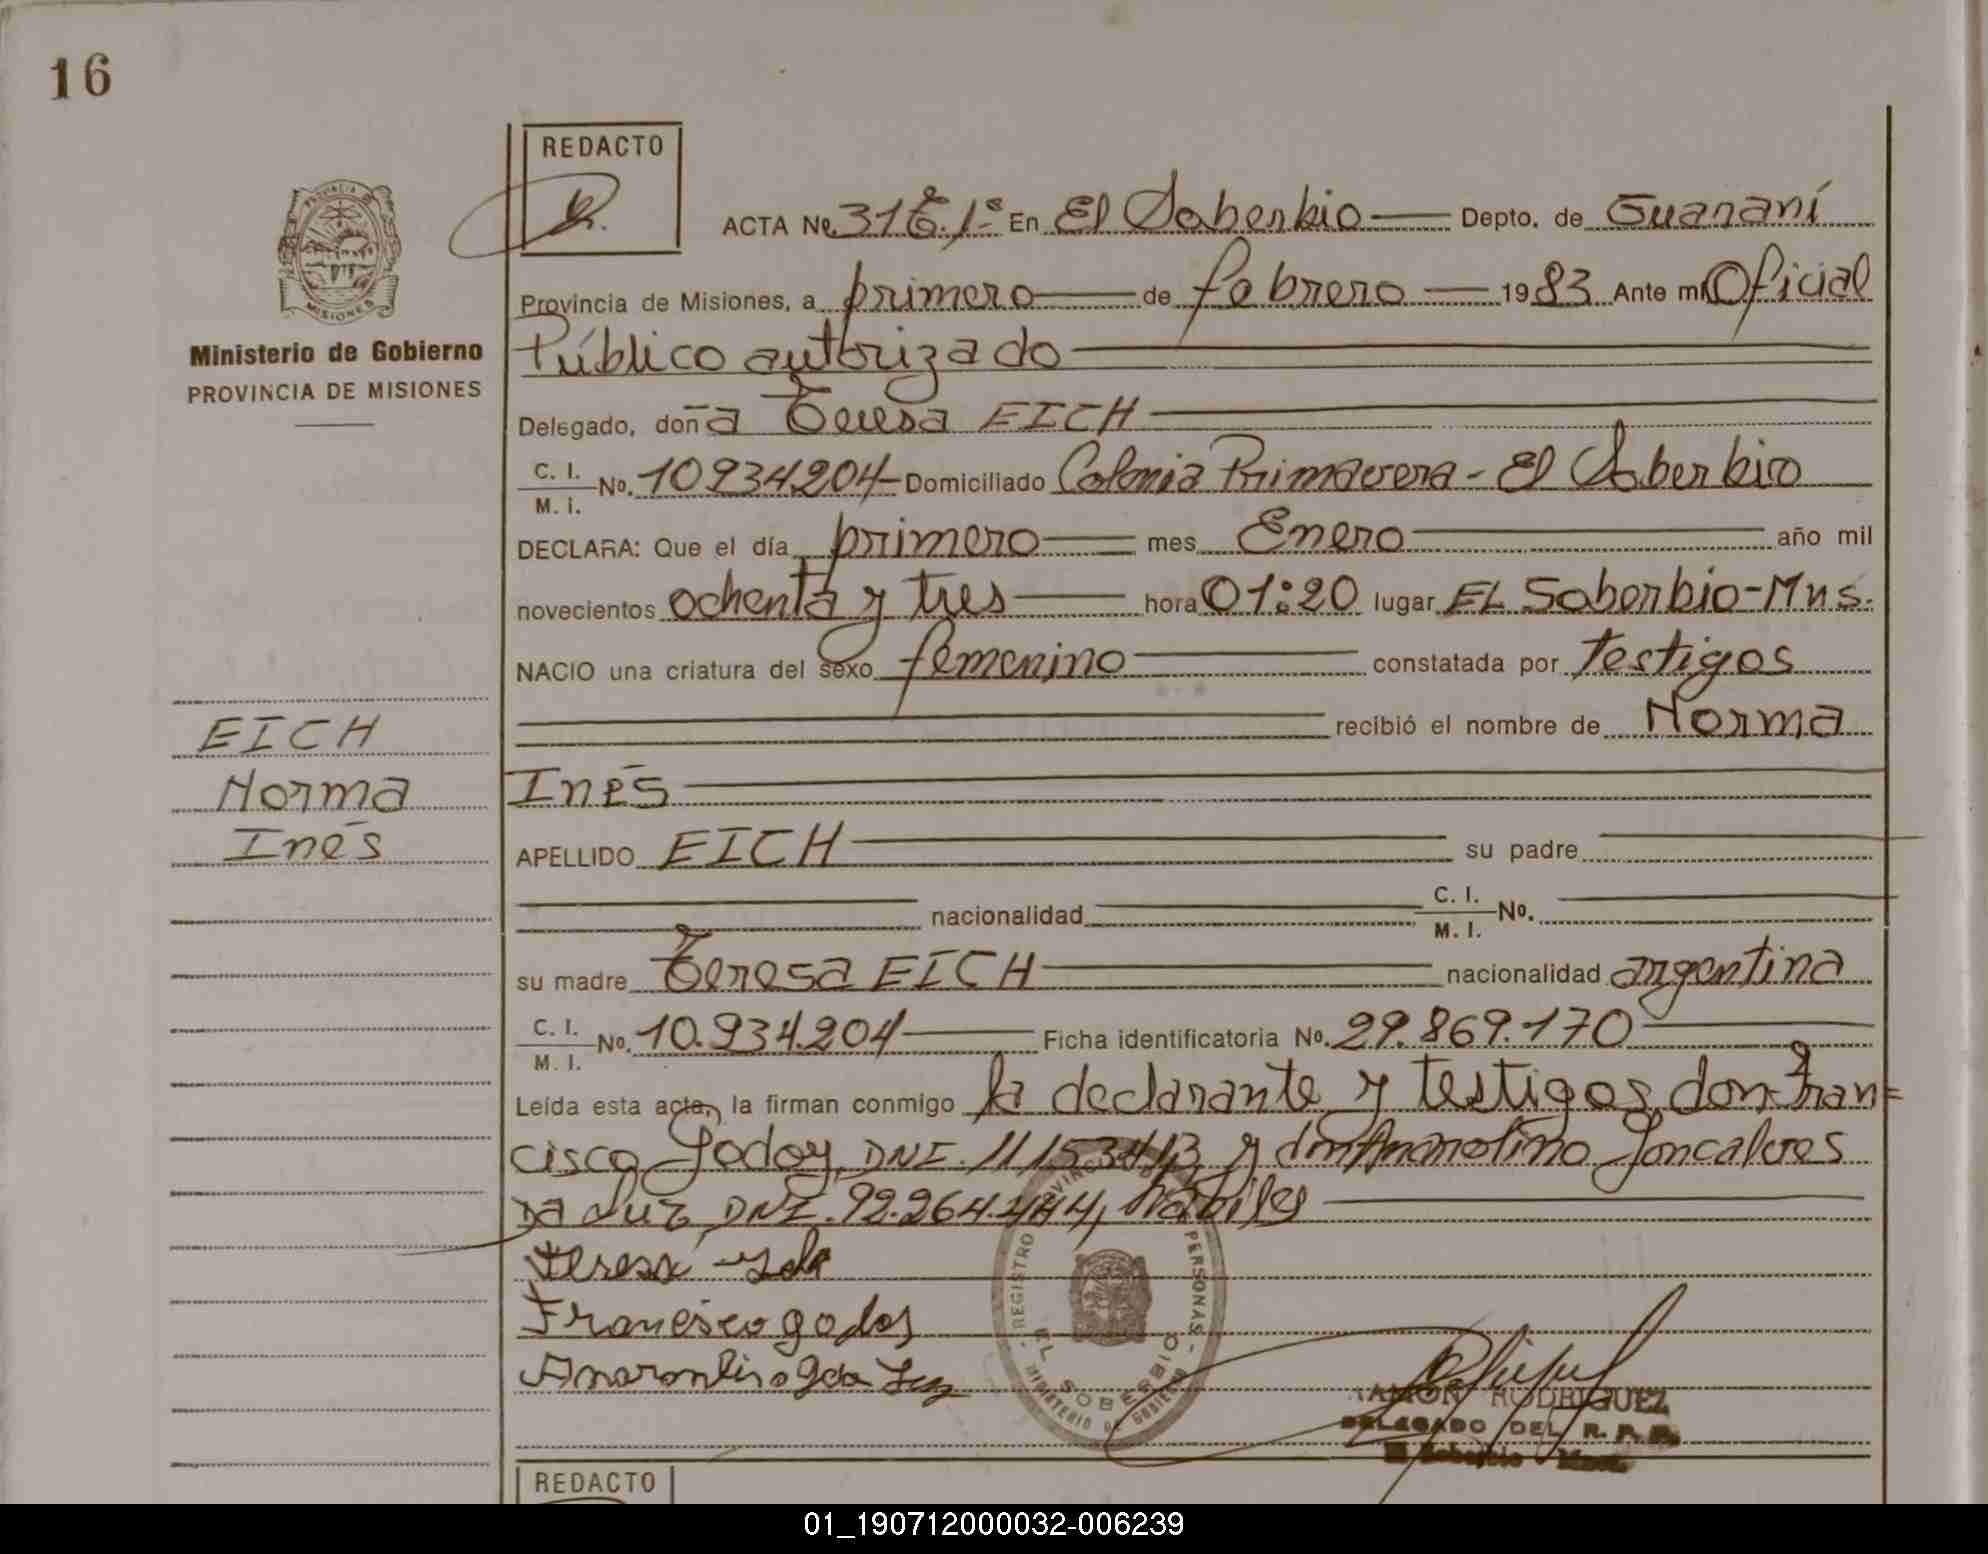 16
REDACTO
ACTA No. 31 T. 1º En El Soberbio Depto. de Guaraní
Provincia de Misiones, a primero de febrero 1983 Ante mí Oficial
Público autorizado
Delegado, doña Teresa EICH
C. I.
M. I. No. 10934204 Domiciliado Colonia Primavera - El Soberbio
DECLARA: Que el día primero mes Enero año mil
novecientos ochenta y tres hora 01:20 lugar EL Soberbio-Mns.
NACIO una criatura del sexo femenino constatada por testigos
recibió el nombre de Norma
Inés
APELLIDO EICH su padre
nacionalidad C. I. M. I. No.
su madre Teresa EICH nacionalidad argentina
C. I.
M. I. No. 10.934.204 Ficha identificatoria No. 29.869.170
Leída esta acta, la firman conmigo la declarante y testigos, don Fran=
cisco Godoy, DNI. 11153413 y don Anarolino Goncalves
Da Luz, DNI. 92.264.444, hábiles
Teresa
Francisco godoy
da Luz
PROVINCIA DE MISIONES
Ministerio de Gobierno
PROVINCIA DE MISIONES
EICH
Norma
Inés
REGISTRO PROVINCIAL PERSONAS
EL SOBERBIO
MINISTERIO DE GOBIERNO
RAMON RODRIGUEZ
DELEGADO DEL R. P. P.
El Soberbio
REDACTO
01_190712000032-006239